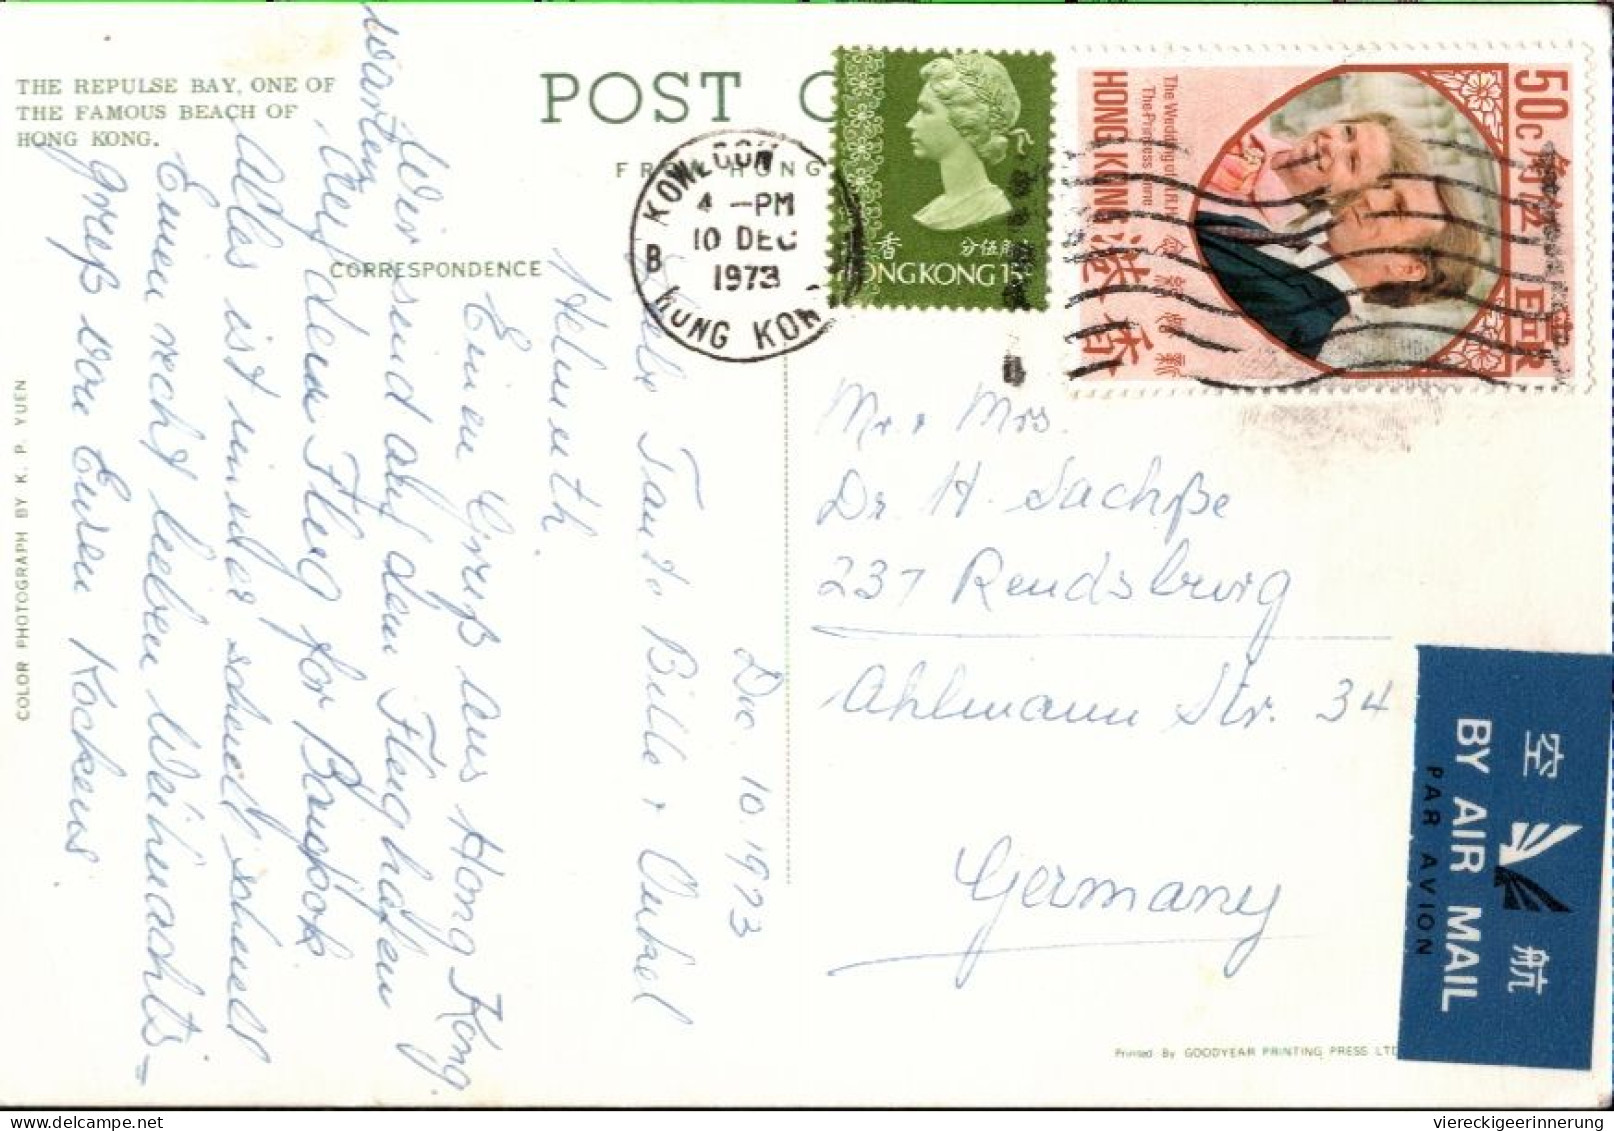 THE REPULSE BAY, ONE OF
THE FAMOUS BEACH OF
HONG KONG.
POST C
FR HONG
CORRESPONDENCE
COLOR PHOTOGRAPH BY K. P. YUEN
KOWLOON
4 -PM
10 DEC
1973
B
HONG KONG
香 分伍
HONG KONG 15
50c 角伍
The Wedding of H.R.H.
The Princess Anne
HONG KONG 港香
Dec. 10. 1973
Liebe Tante Bille + Onkel
Helmuth.
Einen Gruß aus Hong Kong.
Wir sind auf dem Flughafen
warten
auf den Flug for Bangkok
Alles ist wieder schnell, schnell
Einen recht lieben Weihnachts-
gruß von Euren Kockens
Mr. + Mrs.
Dr H. Sachße
237 Rendsburg
Ahlmann Str. 34
Germany
空 航
BY AIR MAIL
PAR AVION
Printed By GOODYEAR PRINTING PRESS LTD
viereckigeerinnerung